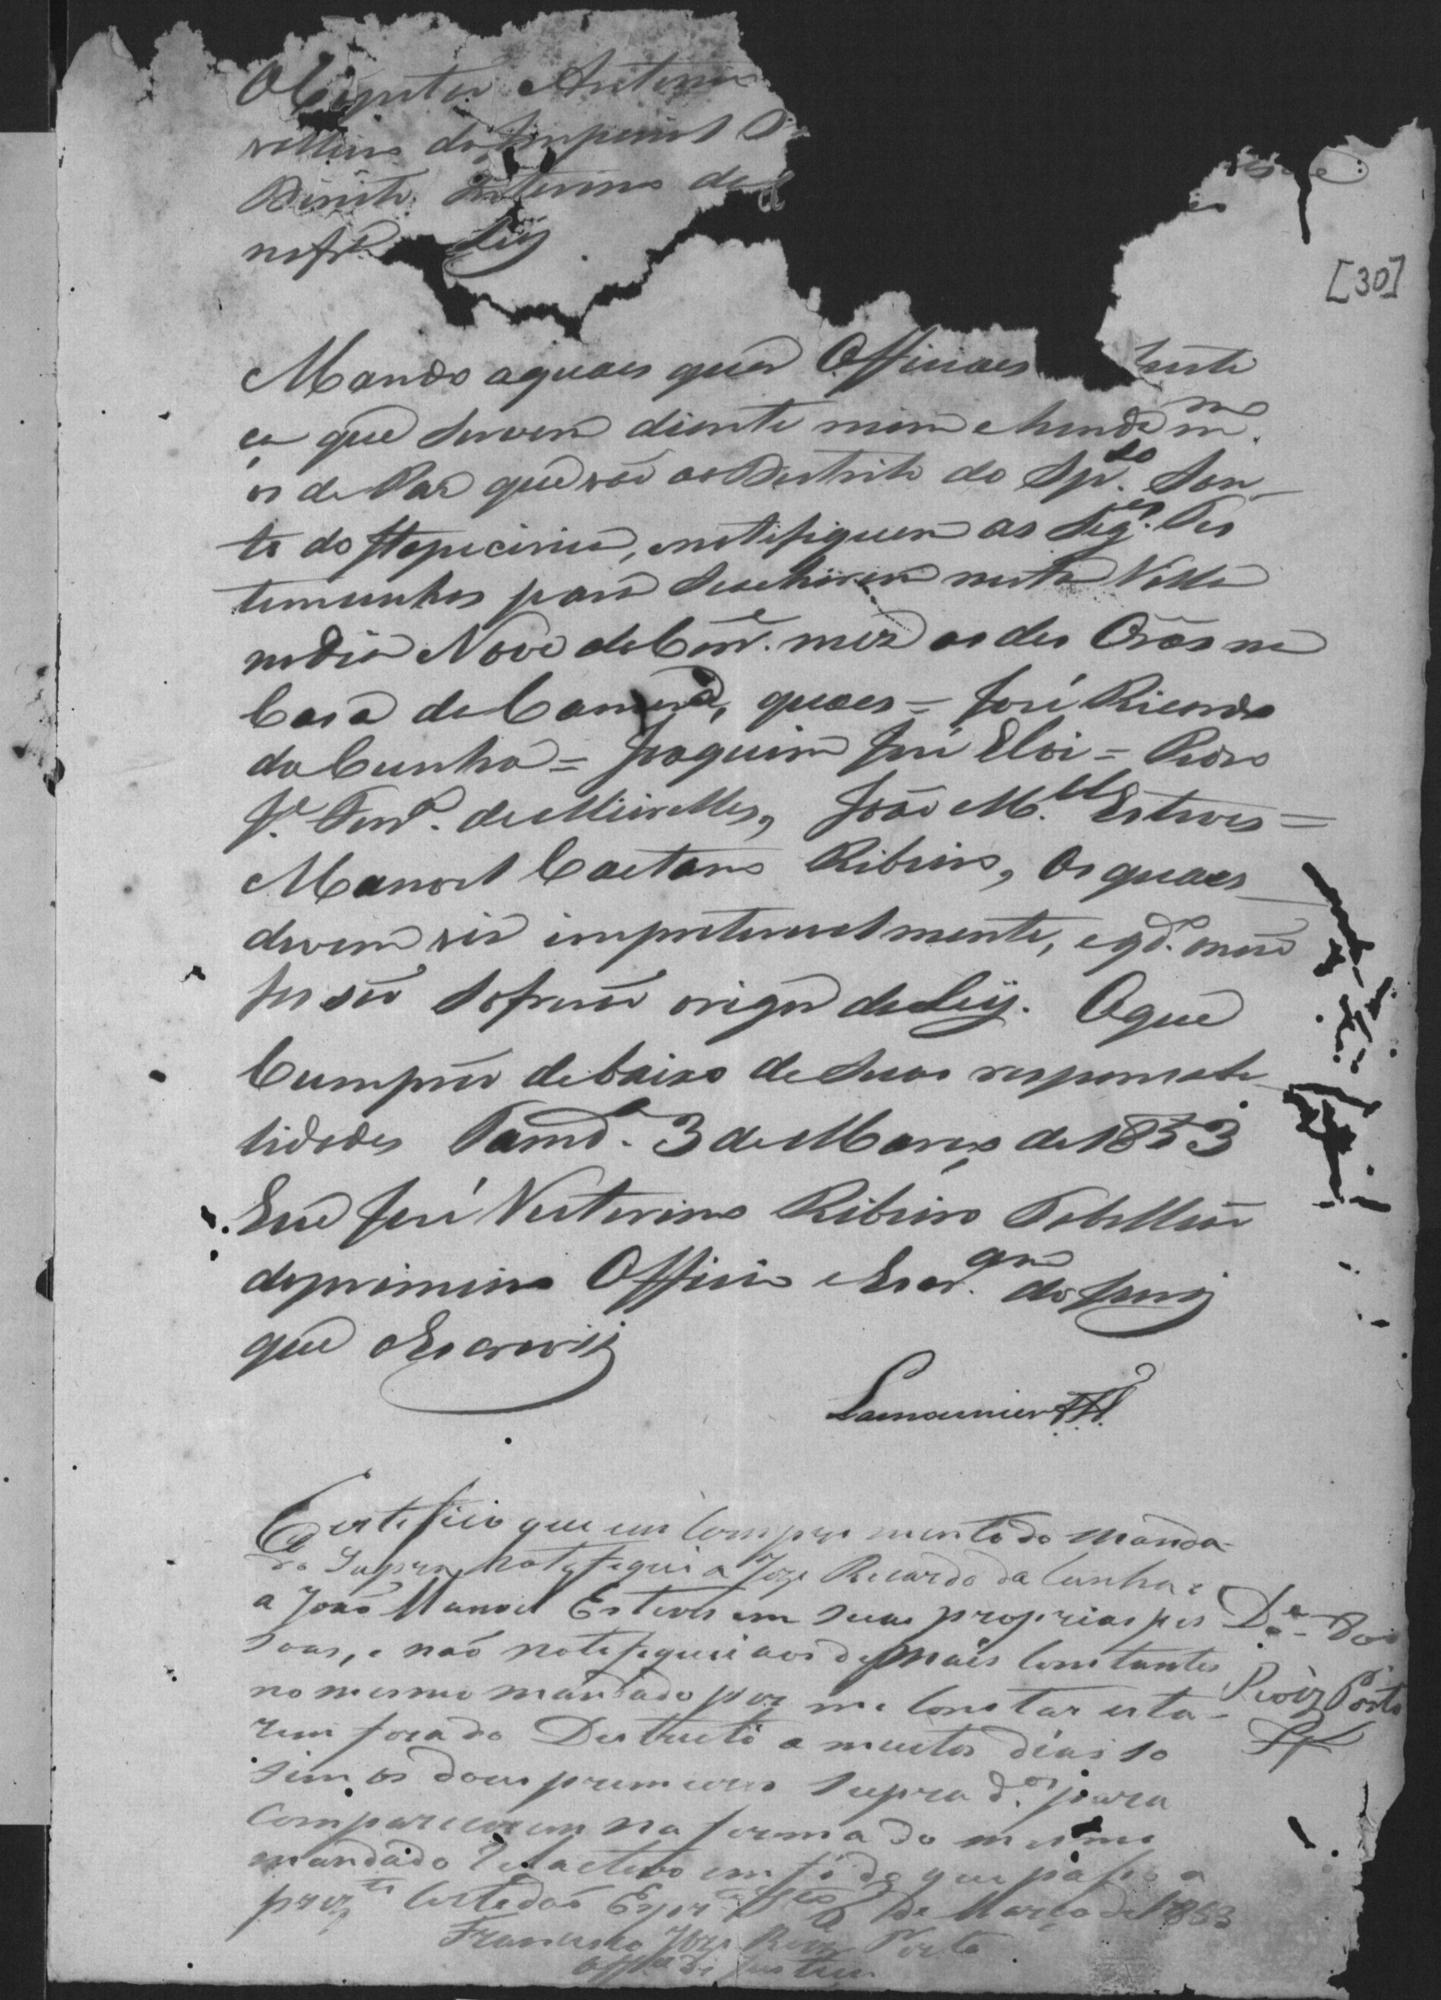 O Capitão Antonio
valleiro da Imperial
Direito Interino da
na fr.ª Ley
[30]
Mando a quaes quer Officiaes Justi
ça que servem diante mim e hendo
os de Paz que são ao Destrito do Sp.to San
to do Itapicirica, e notifiquem as Seg.es Tes
temunhas para se acharem nesta Villa
no dia Nove do Corr.e mez as des Oras na
Casa da Camara, quaes = José Ricardo
da Cunha = Joaquim José Eloi = Pedro
J.e Ferr.a de Meirelles, João M.el Esteves =
Manoel Caetano Ribeiro, Os quaes
devem vir impreterivelmente, e q.do não
fação sofrerão o rigor da Ley. O que
Cumprão debaixo de suas responsabi
lidades Tamd.a 3 de Março de 1853
Eu José Victorino Ribeiro Tabellião
do primeiro Officio e Escr.am do Jury
que o Escrevi
Lamounier
Certifico que em Comprimento do manda-
do Supra, Notefiquei a Joze Ricardo da Cunha e
a João Manoel Esteves em suas proprias pes
soas, e não notefiquei aos demais Constantes
no mesmo mandado por me Constar esta-
rem fora do Destricto a muitos dias so
sim os dous primeiros Supra d.os para
Comparecerem na forma do mesmo
mandado Relactivo em fé do que passo a
prez.te Certedão de Março de 1853
Francisco Joze Roiz Porto
Off.al de Justiça
Roiz Porto